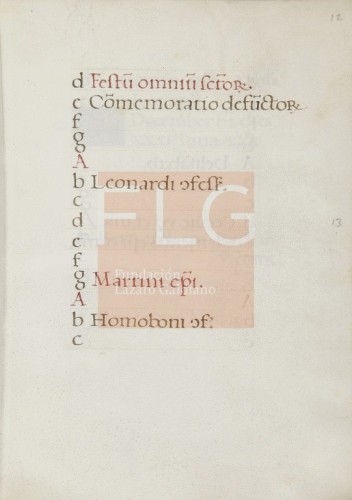 12
d Festū omniū sctōꝝ.
e Cōmemoratio defūctoꝝ
f
g
A
b Leonardi ꝯfess.
c
d
13
e
f
g Martini epi.
A
b Homoboni ꝯf.
c
FLG
Fundación
Lázaro Galdiano